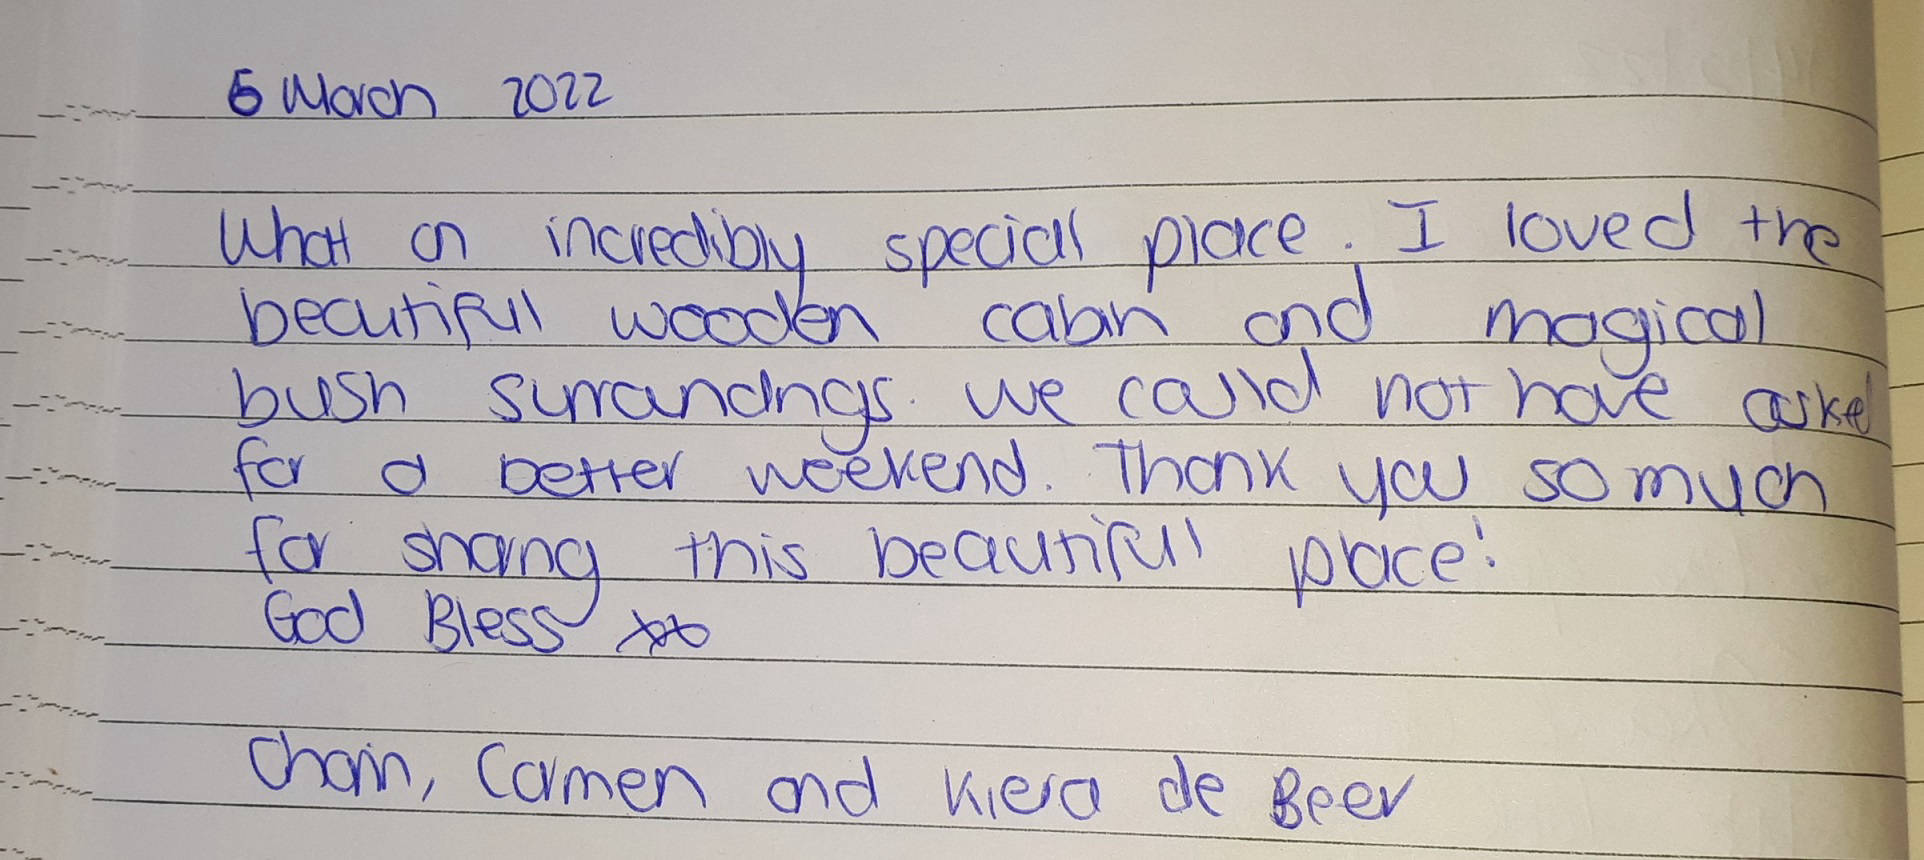 6 March 2022
What an incredibly special place. I loved the
beautiful wooden cabin and magical
bush surroundings. We could not have asked
for a better weekend. Thank you so much
for sharing this beautiful place!
God Bless xx
Carmen and Kiera de Beer